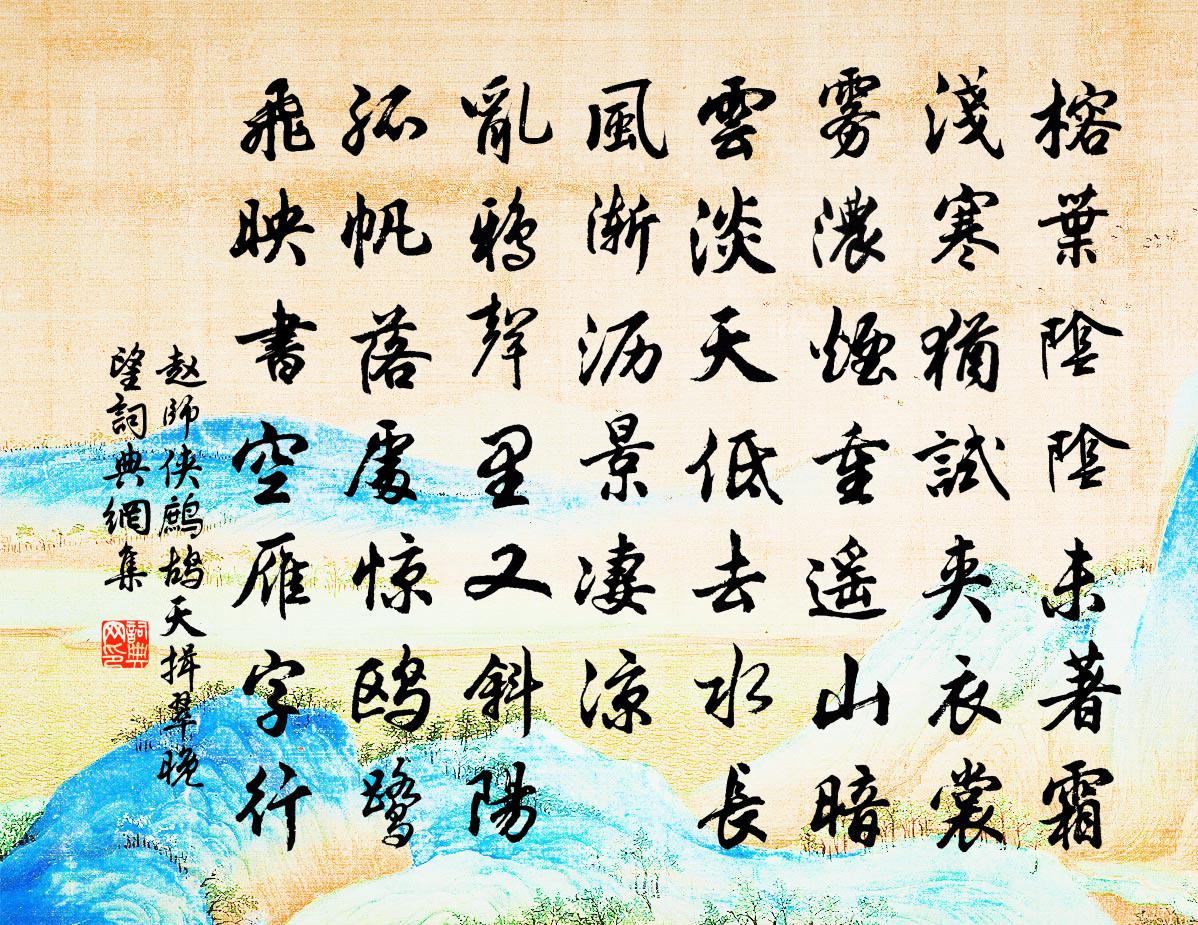 榕葉陰陰未著霜
淺寒猶試夾衣裳
霧濃煙重遥山暗
雲淡天低去水長
風漸沥景凄凉
亂鴉聲里又斜陽
孤帆落處惊鸥鷺
飛映書空雁字行
赵師侠鷓鴣天揖翠晚
望詞典網集
詞典网印